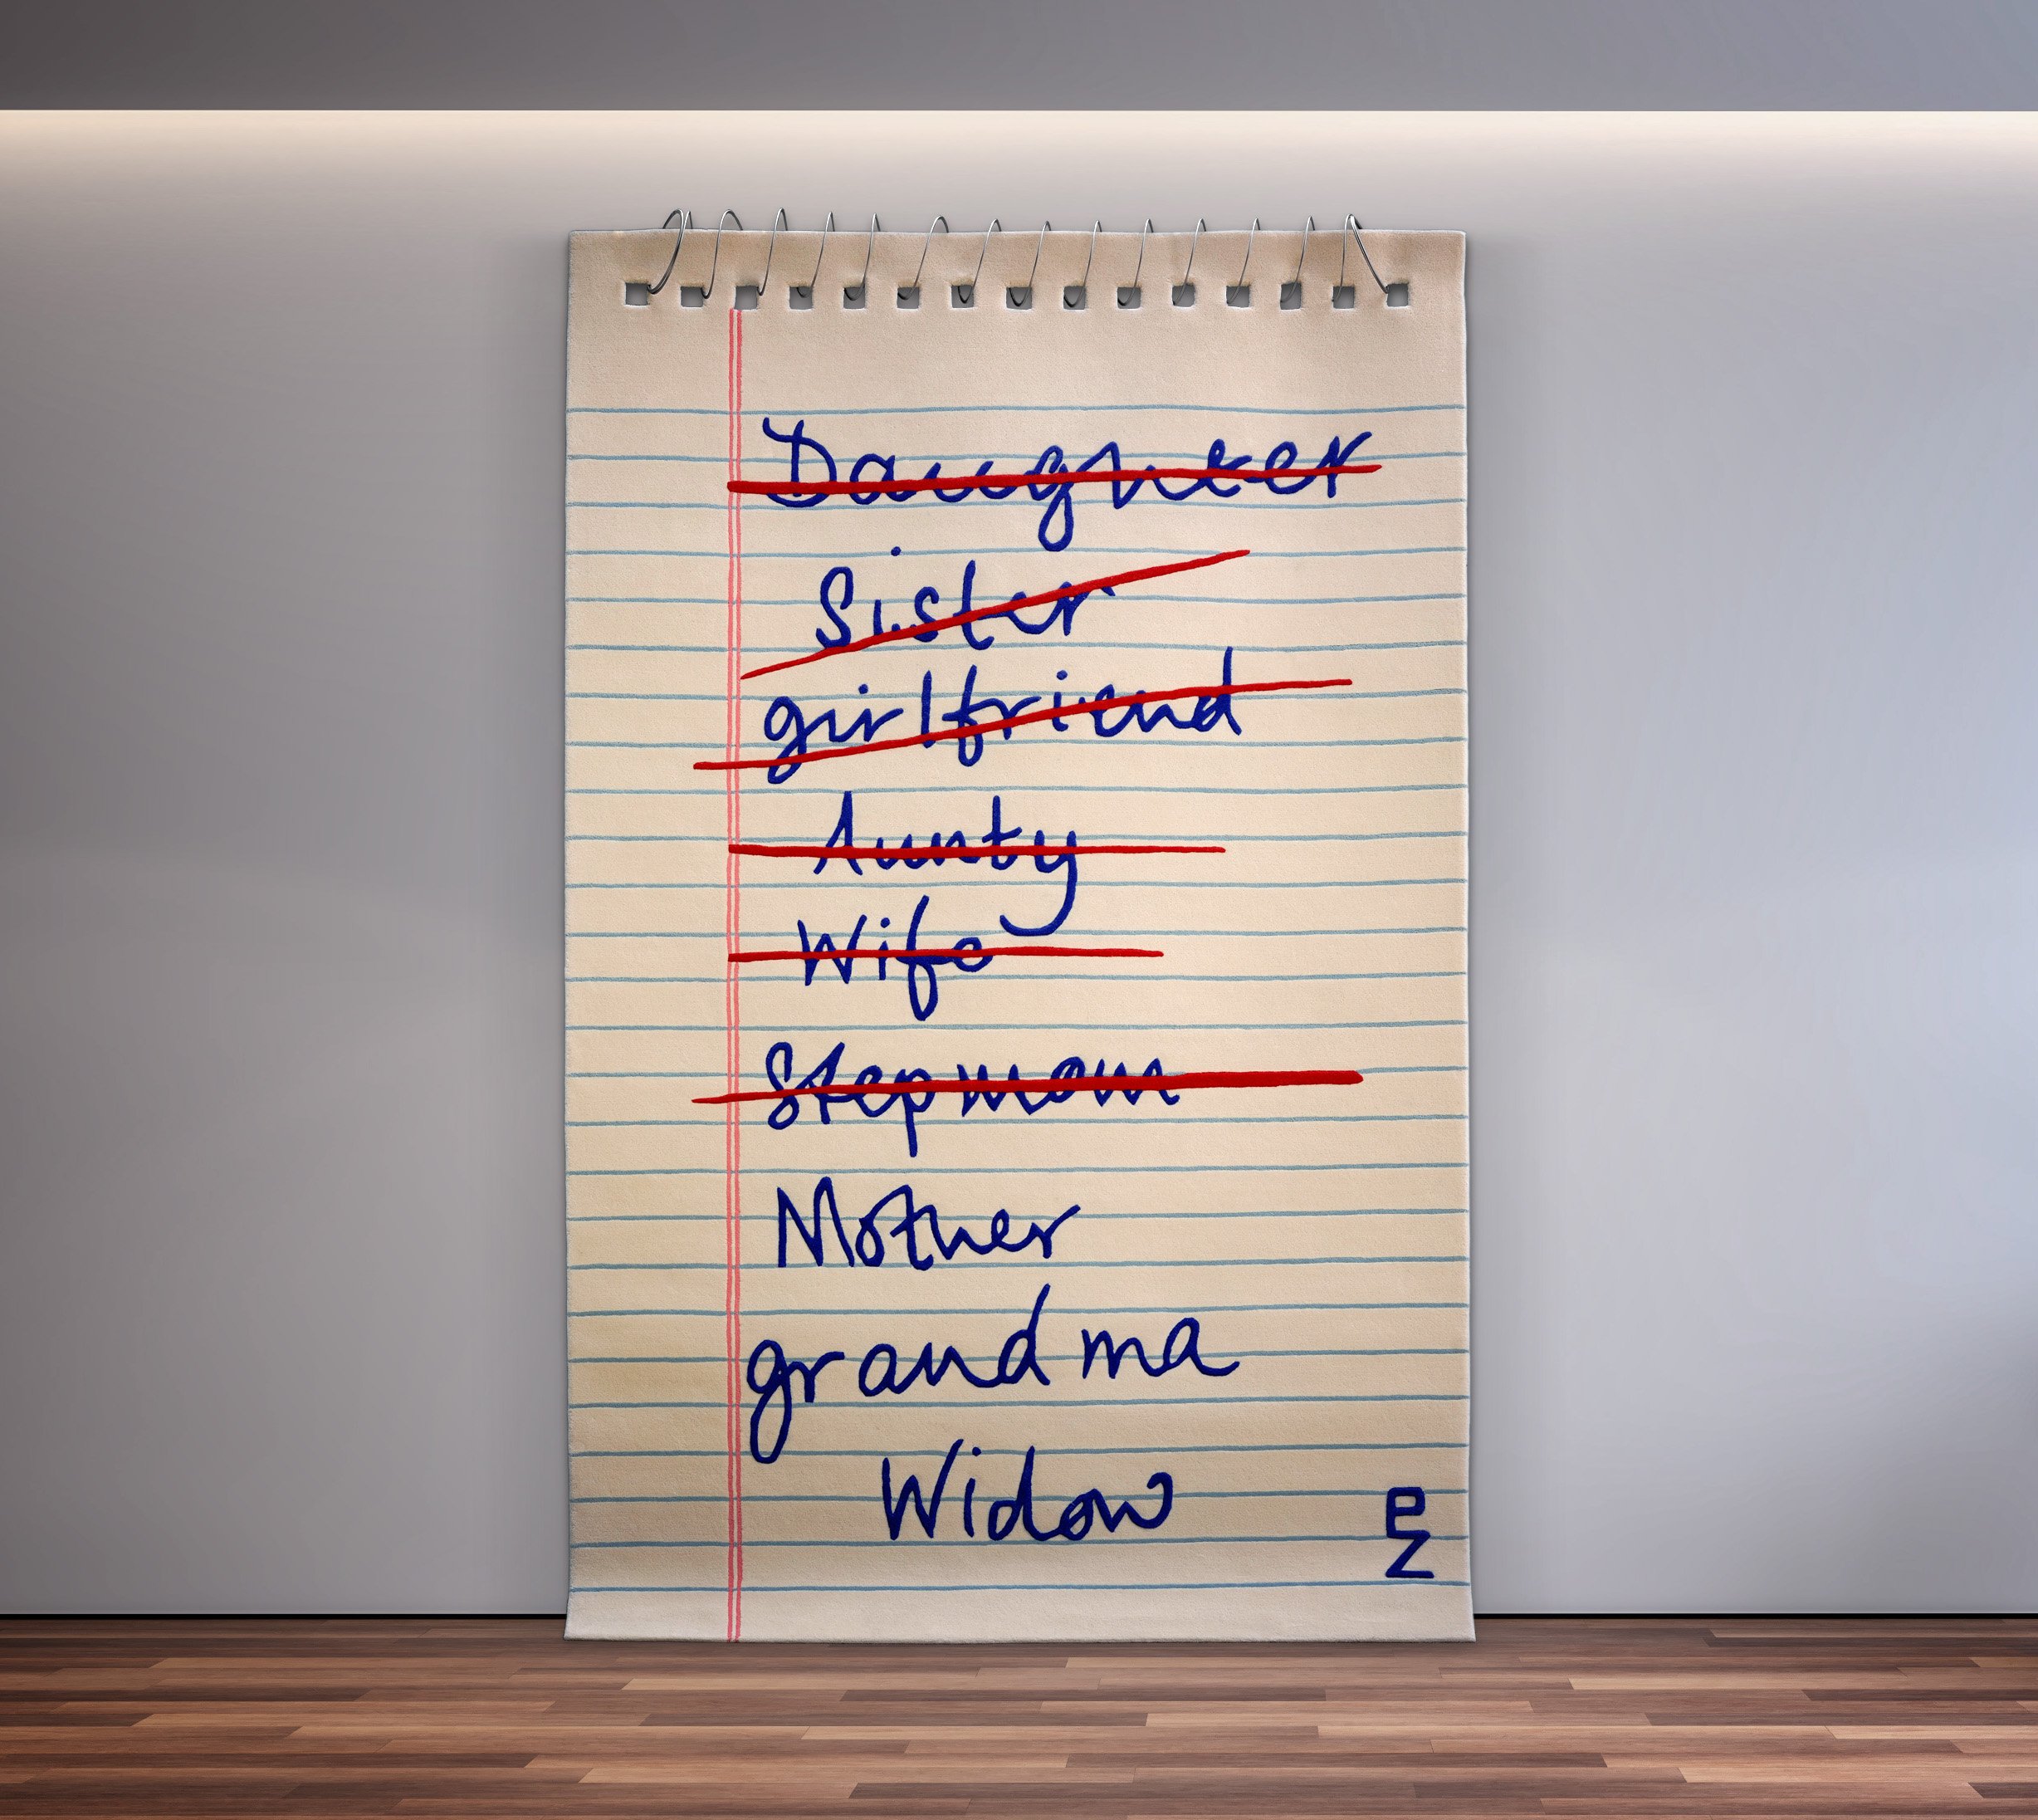 Daughter
Sister
girlfriend
Aunty
Wife
Stepmom
Mother
grandma
Widow